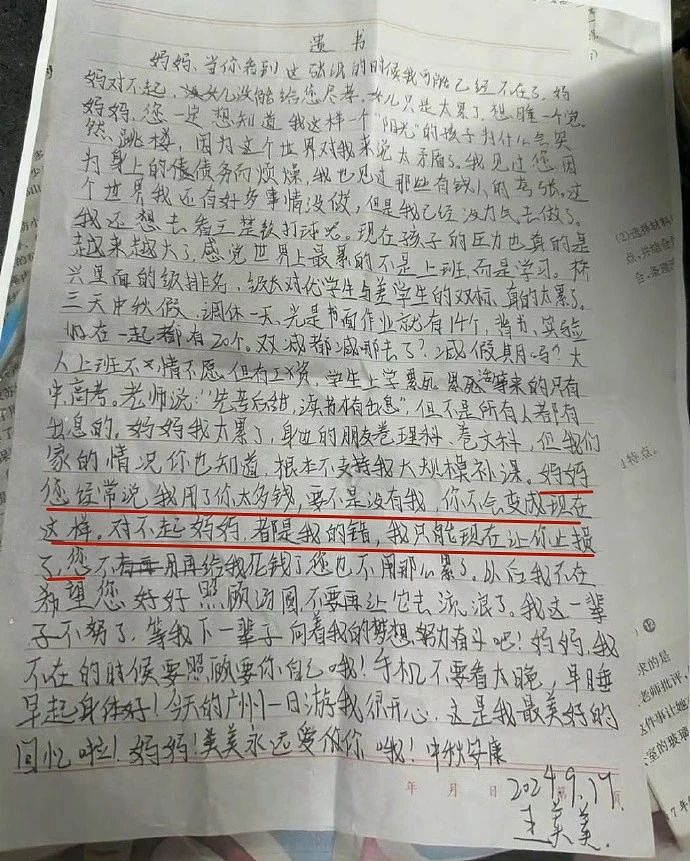 遗书
妈妈，当你看到这张纸的时候我可能已经不在了，妈
妈对不起，女儿没能给您尽孝，女儿只是太累了，想睡一个觉
妈妈，您一定想知道我这样一个“阳光”的孩子为什么会突
然跳楼，因为这个世界对我来说太矛盾了。我见过您因
为身上的债务而烦燥，我也见过那些有钱人的高张。这
个世界我还有好多事情没做，但是我已经没力气去做了。
我还想去看王楚钦打球呢。现在孩子的压力也真的是
越来越大了，感觉世界上最累的不是上班，而是学习。
兴里面的级排名，级长对优学生与差学生的双标，真的太累了。
三天中秋假，调休一天，光是书面作业就有14个，背书，实验
加在一起都有20个。双减都减哪去了？减假期吗？大
人上班不情不愿但有工资，学生上学累死累活等来的只有
中高考。老师说：“先苦后甜，读书才有出息”，但不是所有人都有
出息的。妈妈我太累了，身边的朋友卷理科，卷文科，但我们
家的情况你也知道，根本不支持我大规模补课。妈妈
您经常说我用了你太多钱，要不是没有我，你不会变成现在
这样。对不起妈妈，都是我的错，我只能现在让你止损
了，您不用再给我花钱了您也不用那么累了。以后我不在
希望您好好照顾汤圆，不要再让它去流浪了。我这一辈
子不努了，等我下一辈子向着我的梦想努力奋斗吧！妈妈，我
不在的时候要照顾要你自己哦！手机不要看太晚，早睡
早起身体好！今天的广州一日游我很开心，这是我最美好的
回忆啦！妈妈！美美永远爱你哦！中秋安康
年 月 日 第 页
2024.9.17
王美美.
(2)选择材料
点，
合、条理
特点。
求的是
老师批评，
这件事让她
室的玻璃